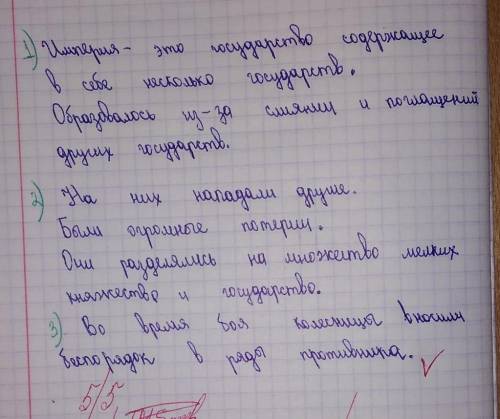 1) Империя - это государство содержащее
в себе несколько государств.
Образовалось из-за слиянии и поглощений
других государств.
2) На них нападали другие.
Были огромные потерии.
Они разделялись на множество мелких
княжество и государство.
3) Во время боя колесницы вносили
беспорядок в ряды противника.
5/5